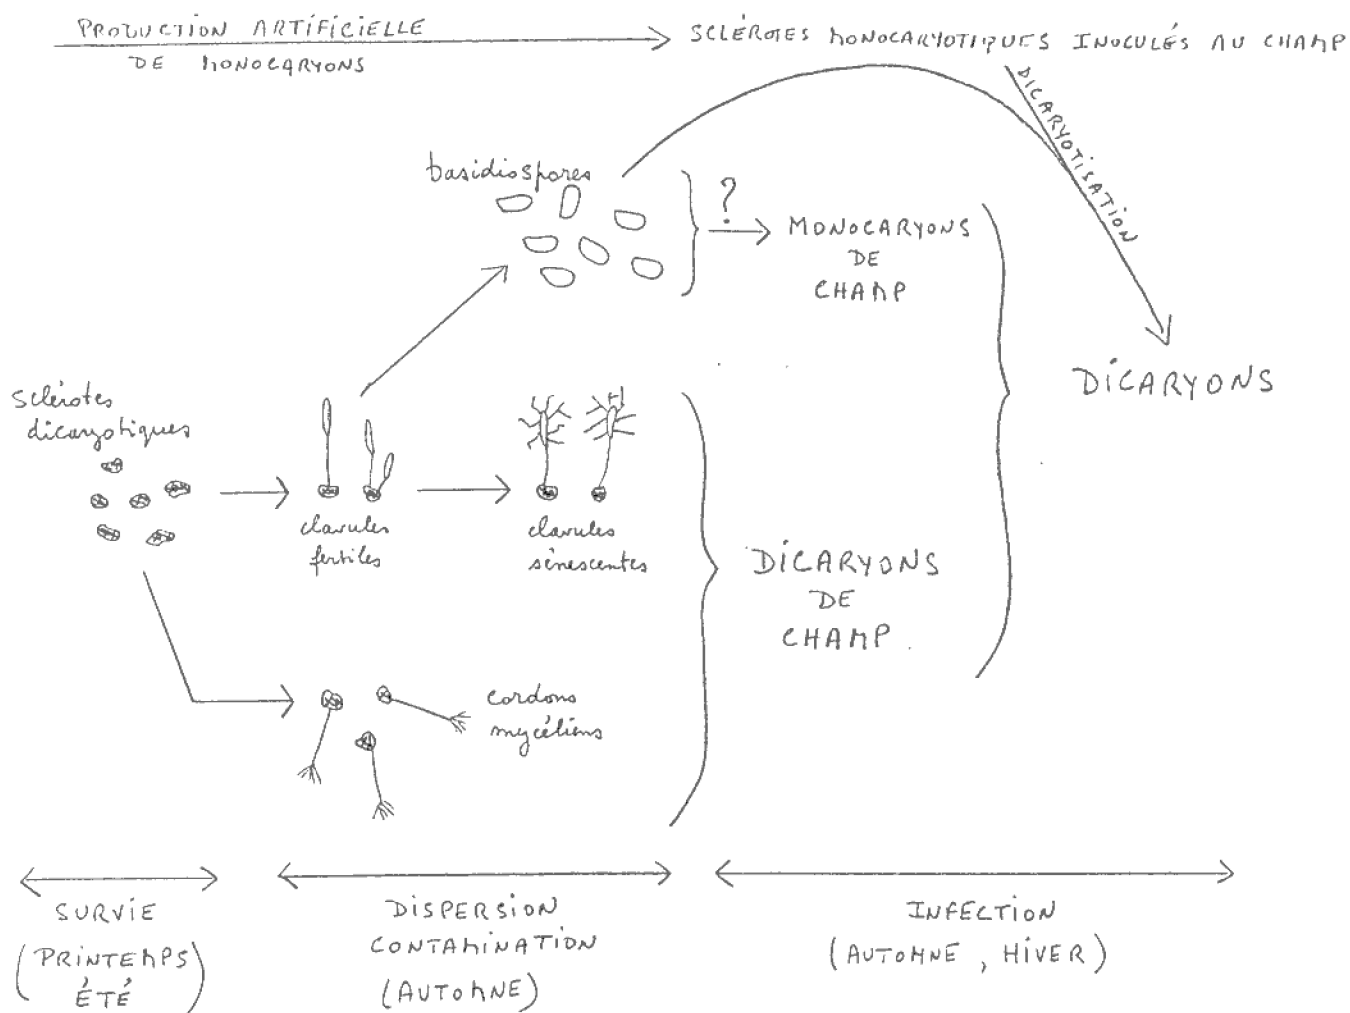 PRODUCTION ARTIFICIELLE
DE MONOCARYONS
SCLÉROTES MONOCARYOTIQUES INOCULÉS AU CHAMP
DICARYOTISATION
basidiospores
?
MONOCARYONS
DE
CHAMP
DICARYONS
sclérotes
dicaryotiques
clavules
fertiles
clavules
sénescentes
DICARYONS
DE
CHAMP
cordons
mycéliens
SURVIE
(PRINTEMPS
ÉTÉ)
DISPERSION
CONTAMINATION
(AUTOMNE)
INFECTION
(AUTOMNE, HIVER)